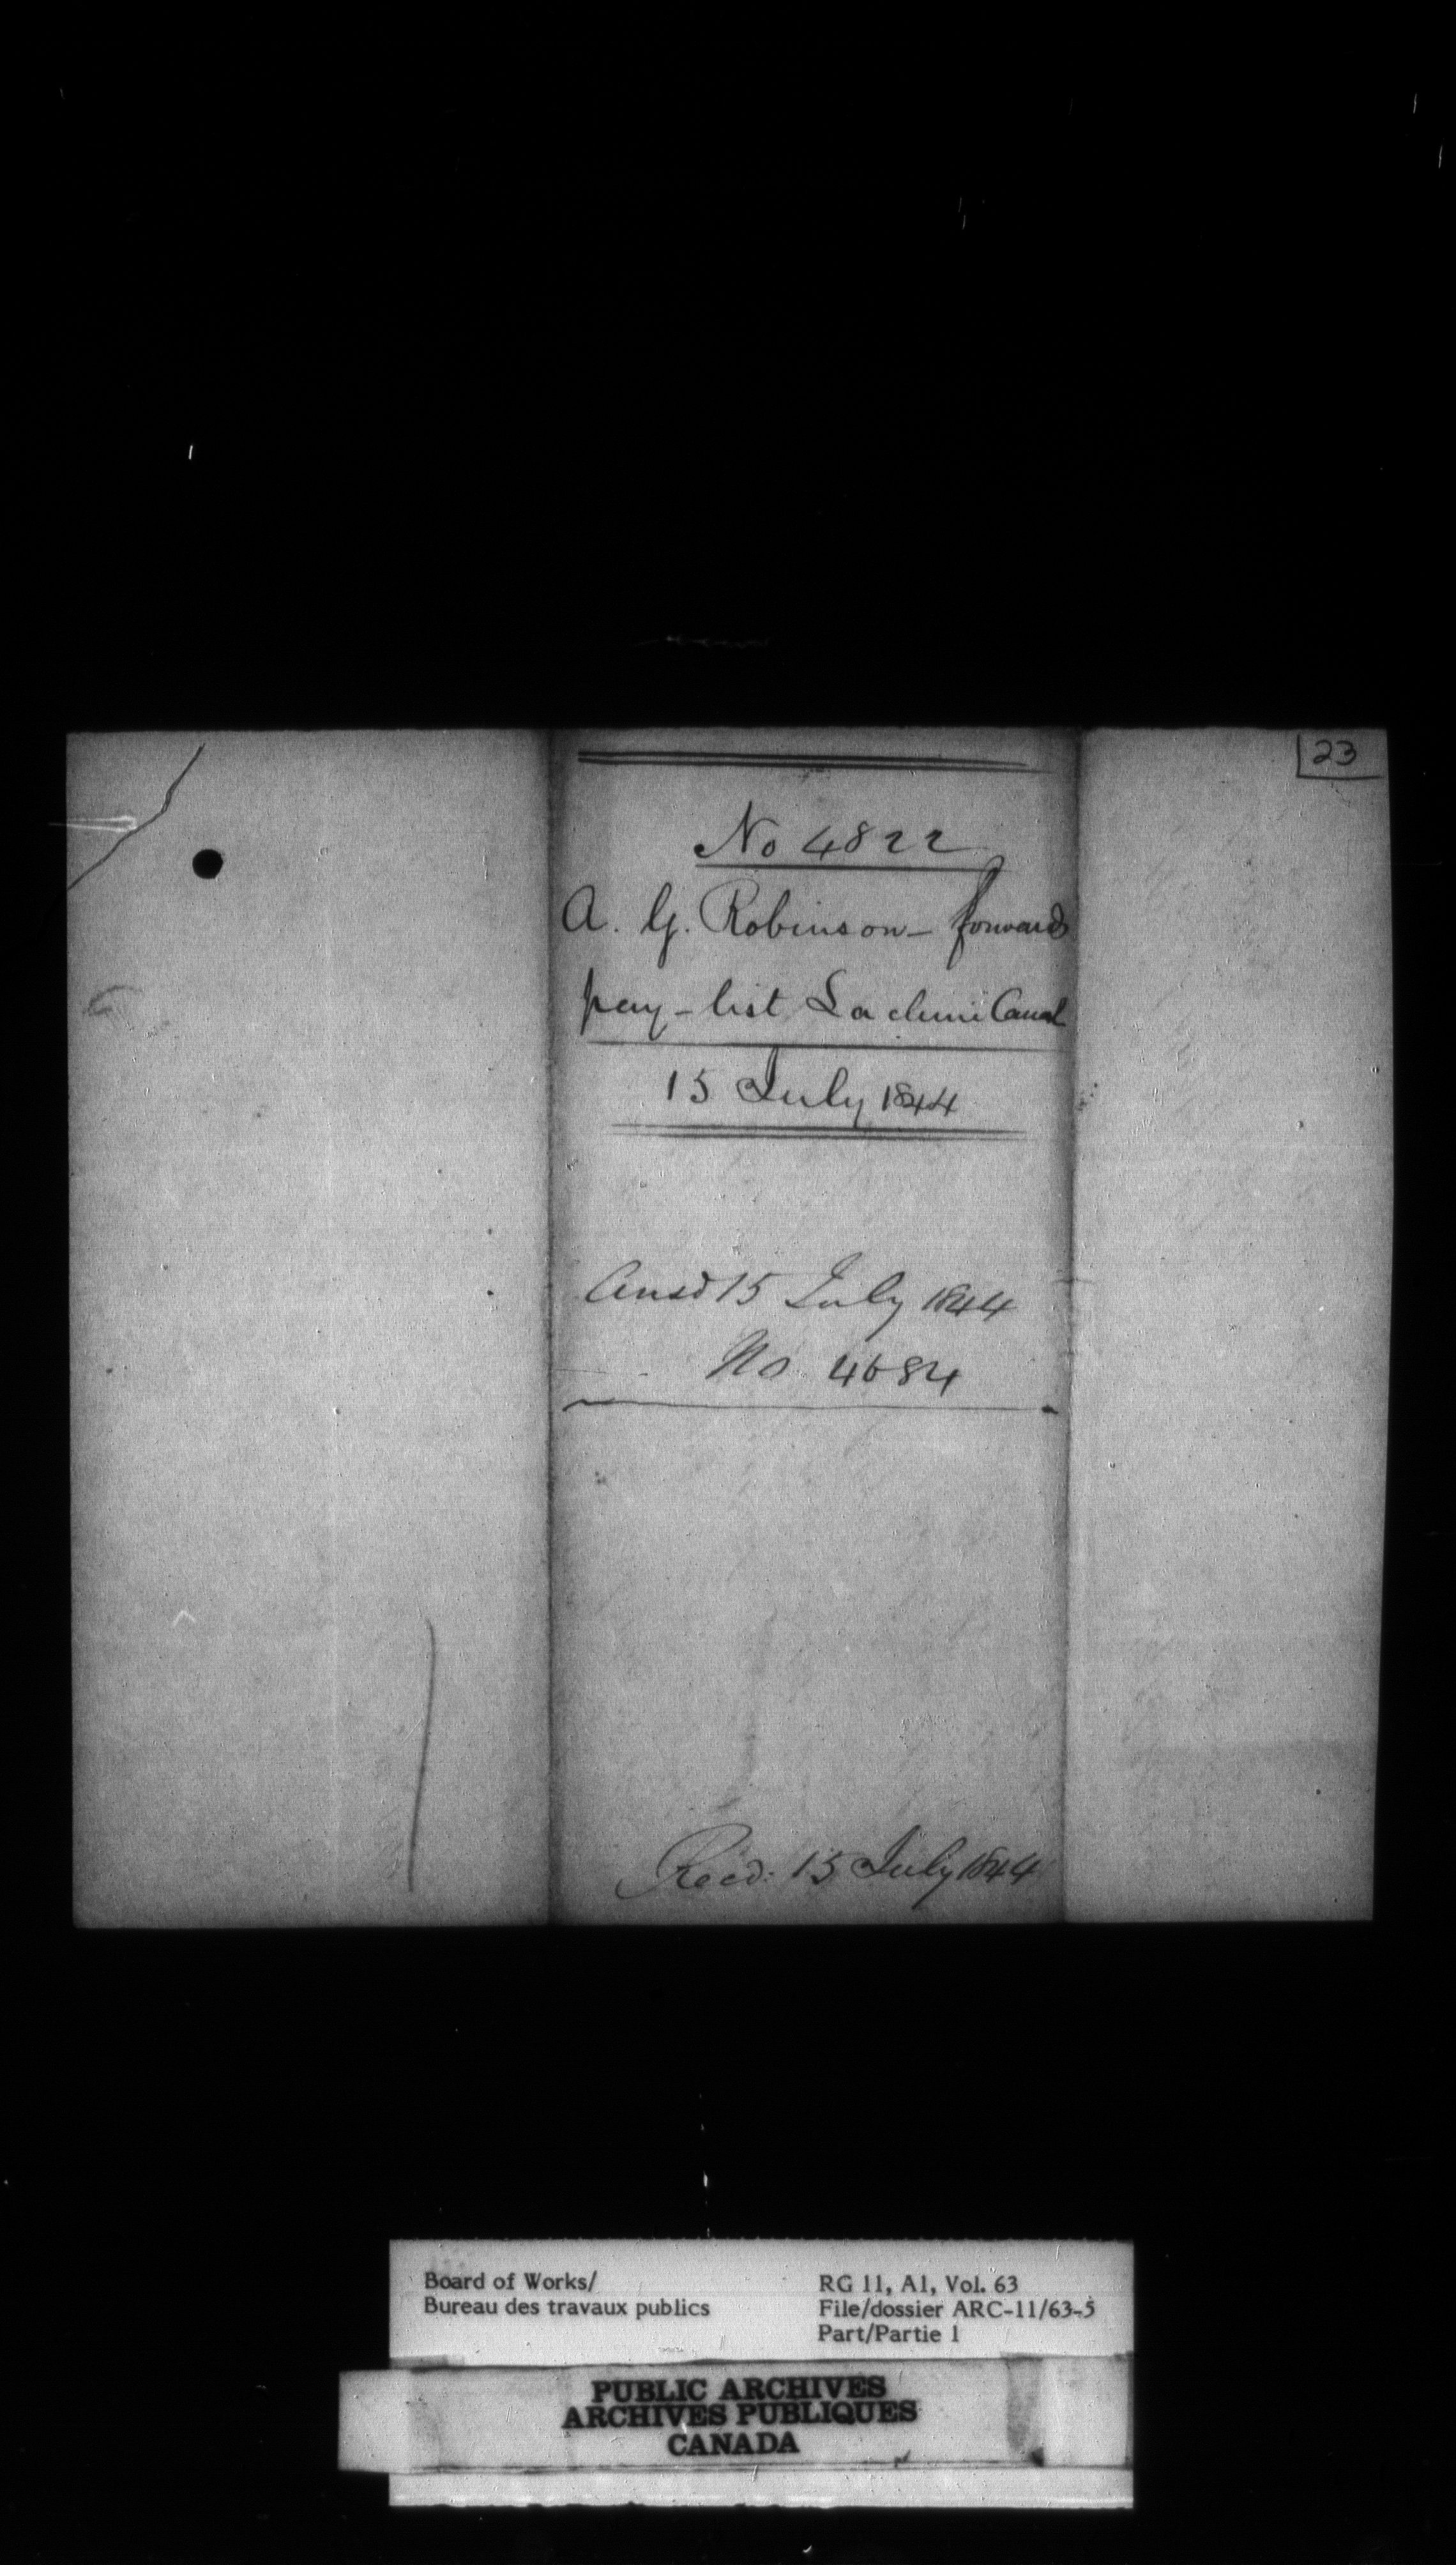 23
No 4822
A. G. Robinson - forwards
pay-list Lachine Canal
15 July 1844
Ansd 15 July 1844
No 4684
Recd: 15 July 1844
Board of Works/
Bureau des travaux publics
RG 11, A1, Vol. 63
File/dossier ARC-11/63-5
Part/Partie 1
PUBLIC ARCHIVES
ARCHIVES PUBLIQUES
CANADA